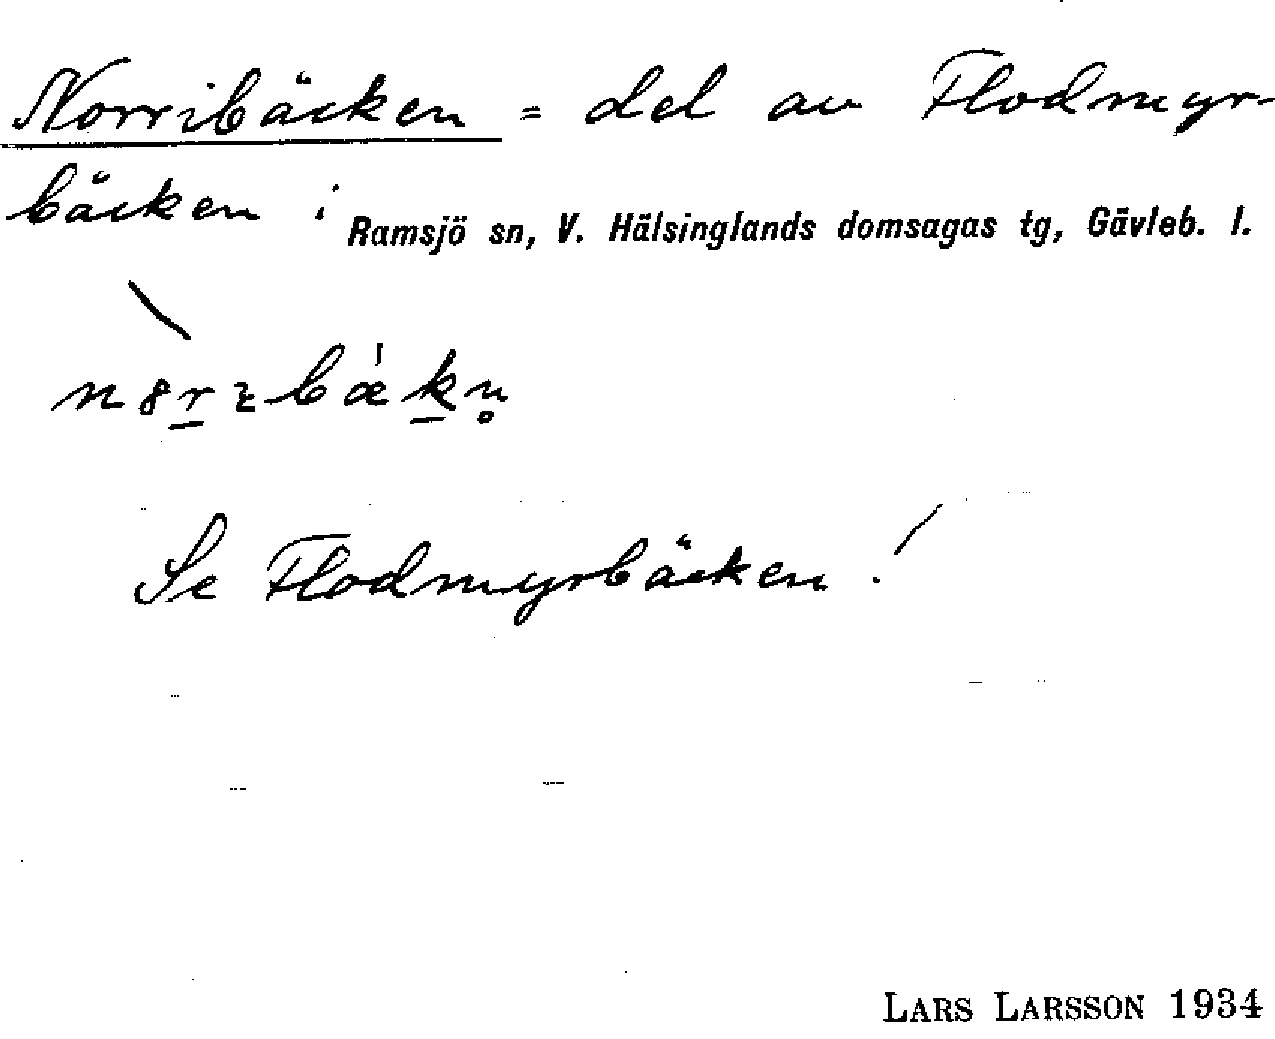 Norribäcken = del av Flodmyr-
bäcken i Ramsjö sn, V. Hälsinglands domsagas tg, Gävleb. l.
Se Flodmyrbäcken!
LARS LARSSON 1934